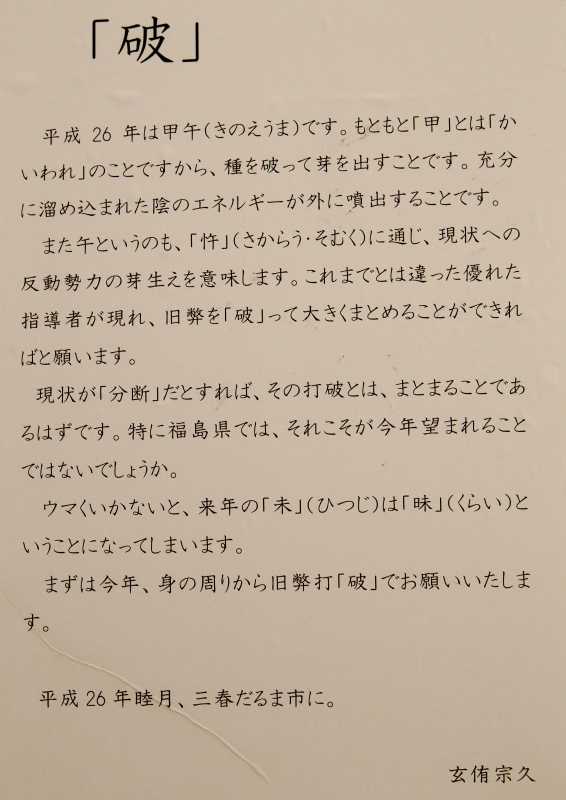 「破」
平成 26 年は甲午(きのえうま)です。もともと「甲」とは「か
いわれ」のことですから、種を破って芽を出すことです。充分
に溜め込まれた陰のエネルギーが外に噴出することです。
また午というのも、「忤」(さからう・そむく)に通じ、現状への
反動勢力の芽生えを意味します。これまでとは違った優れた
指導者が現れ、旧弊を「破」って大きくまとめることができれ
ばと願います。
現状が「分断」だとすれば、その打破とは、まとまることであ
るはずです。特に福島県では、それこそが今年望まれること
ではないでしょうか。
ウマくいかないと、来年の「未」(ひつじ)は「昧」(くらい)と
いうことになってしまいます。
まずは今年、身の周りから旧弊打「破」でお願いいたしま
す。
平成 26 年睦月、三春だるま市に。
玄侑宗久